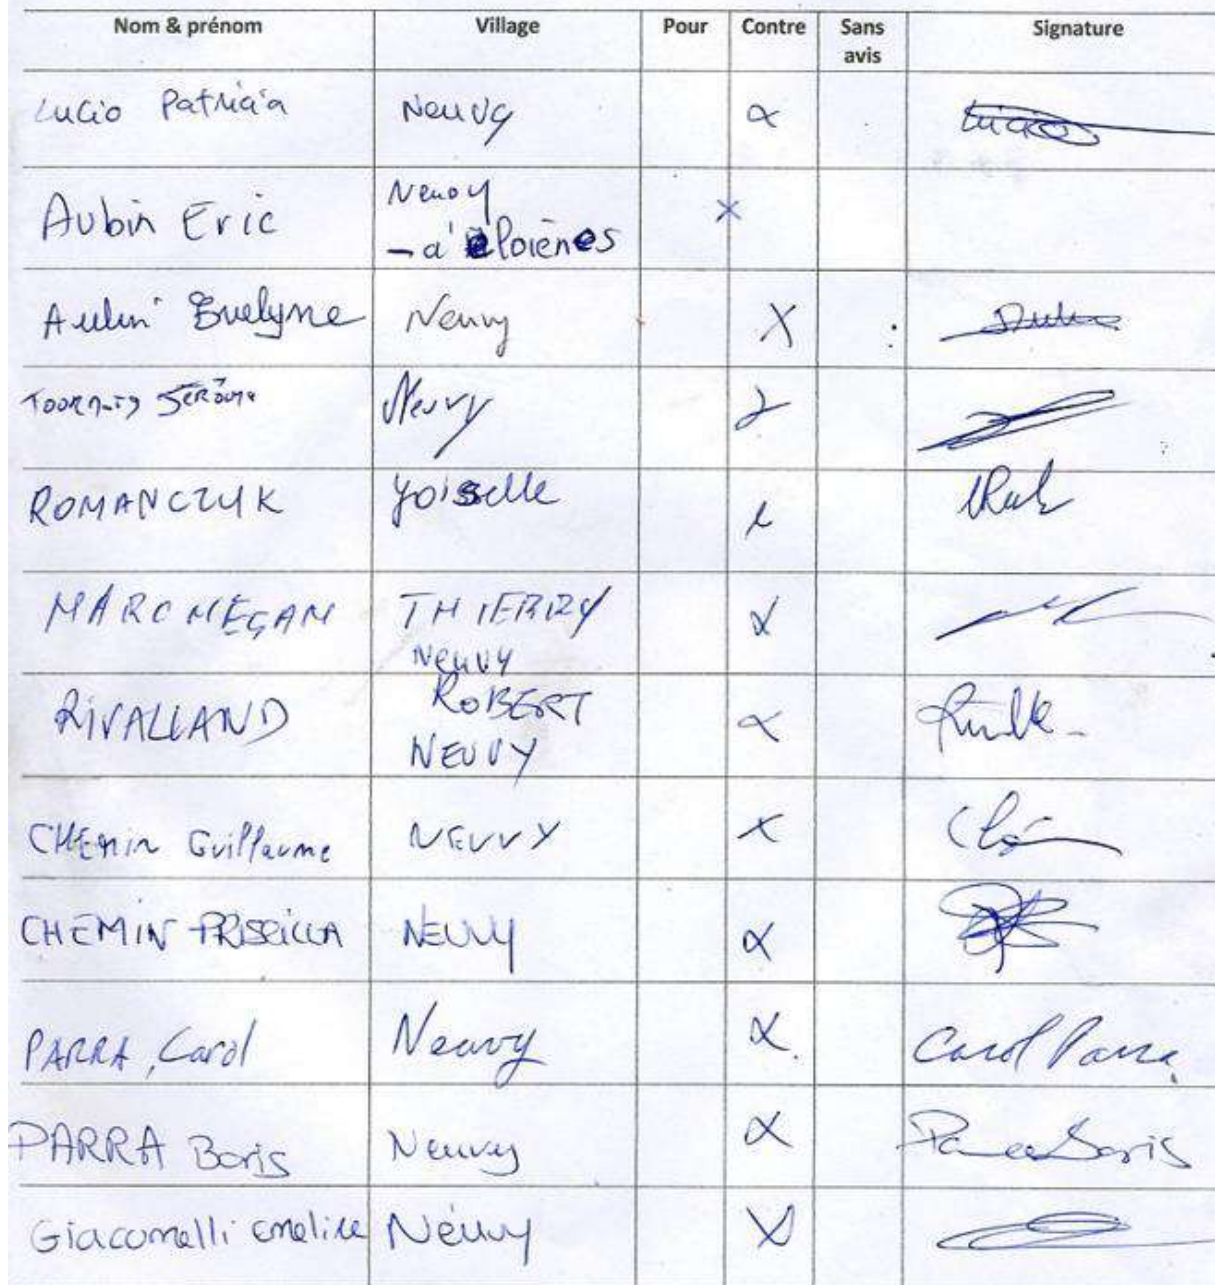 Nom & prénom Village Pour Contre Sans avis Signature
Lucio Patricia Neuvy
Aubin Eric Neuvy
Aubin Evelyne Neuvy X
Jérôme Neuvy
ROMANCZUK Yoiselle
MARC MEGAN THIERRY
Neuvy
RIVALLAND ROBERT
NEUVY
CHEMIN Guillaume NEUVY X
CHEMIN PRISCILLA NEUVY
PARRA, Carol Neuvy Carol Parra
PARRA Boris Neuvy Parra Boris
Giacomelli emeline Neuvy X